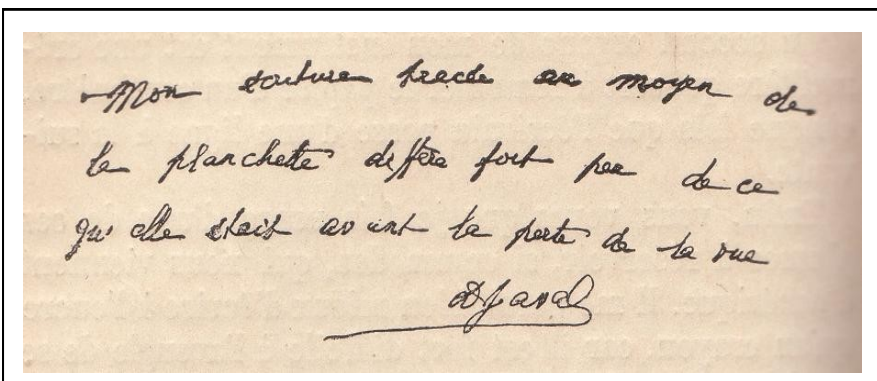 Mon écriture tracée au moyen de
la planchette diffère fort peu de ce
qu'elle était avant la perte de la vue
Dr Javal